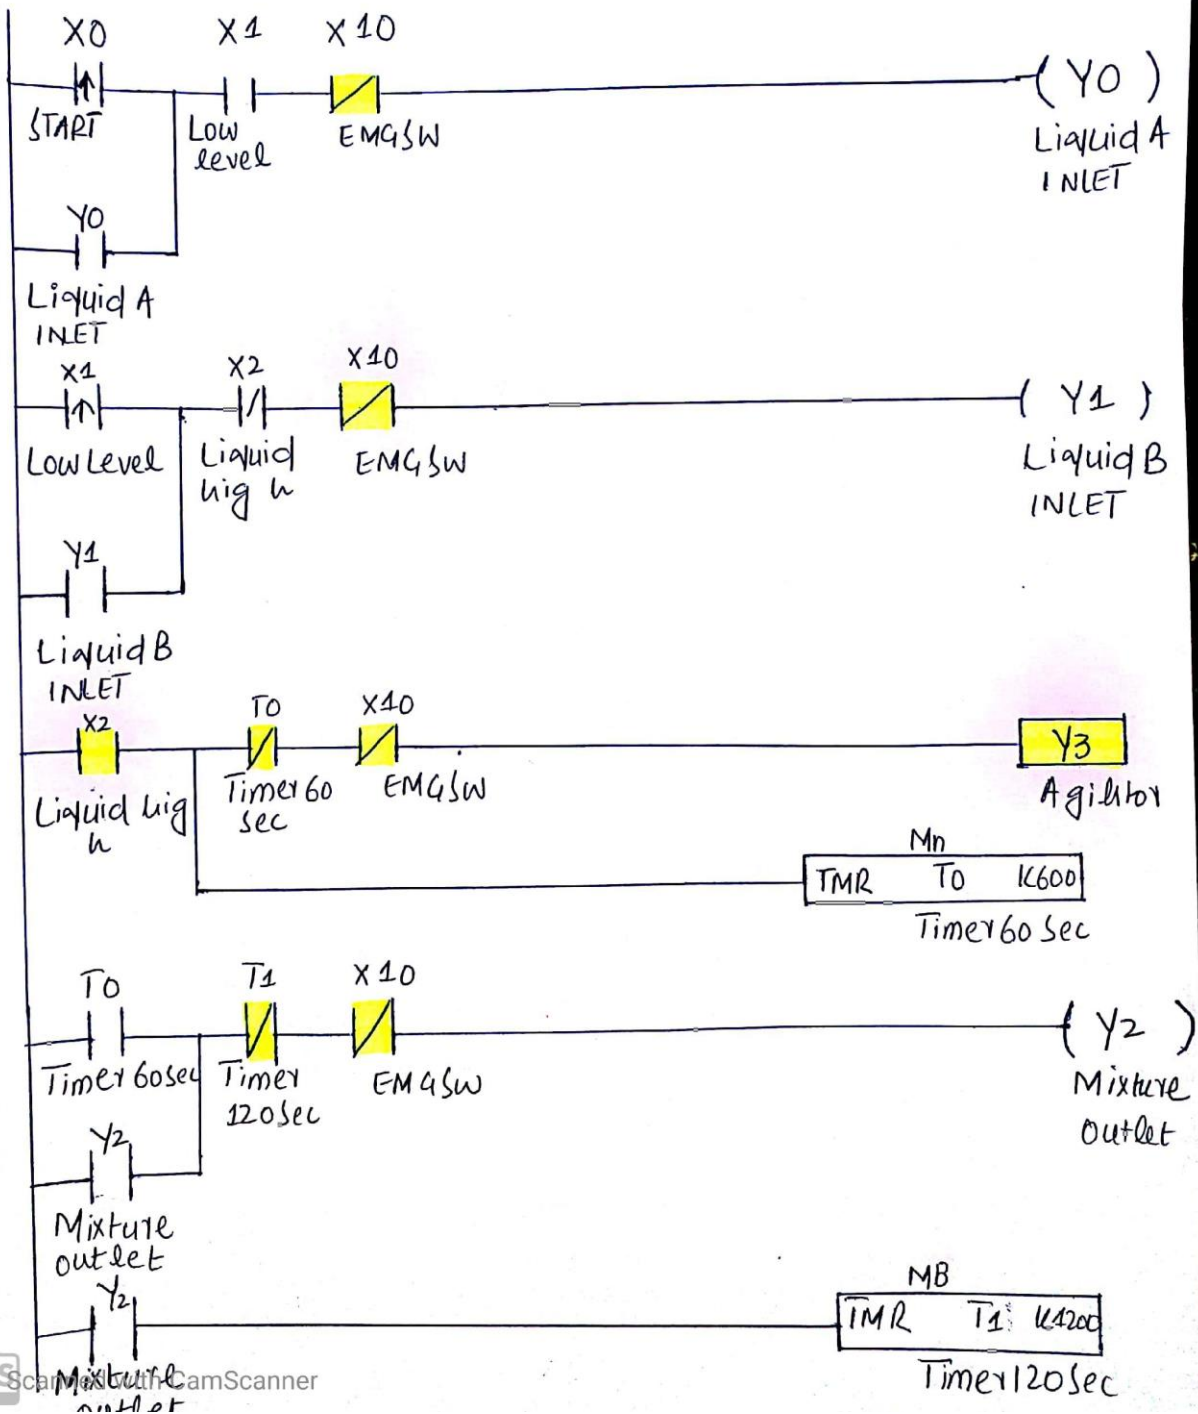 X0 X1 X10
( Y0 )
START Low level EMGSW
Liquid A
INLET
Y0
Liquid A
INLET
X1 X2 X10
( Y1 )
Low Level Liquid high EMGSW
Liquid B
INLET
Y1
Liquid B
INLET
X2 T0 X10
Y3
Liquid high Timer 60 sec EMGSW
Mn
TMR T0 K600
Timer 60 Sec
T0 T1 X10
( Y2 )
Timer 60sec Timer 120Sec EMGSW
Mixture
Outlet
Y2
Mixture
outlet
Y2
MB
TMR T1 K1200
Mixture
outlet
Timer 120Sec
Scanned with CamScanner